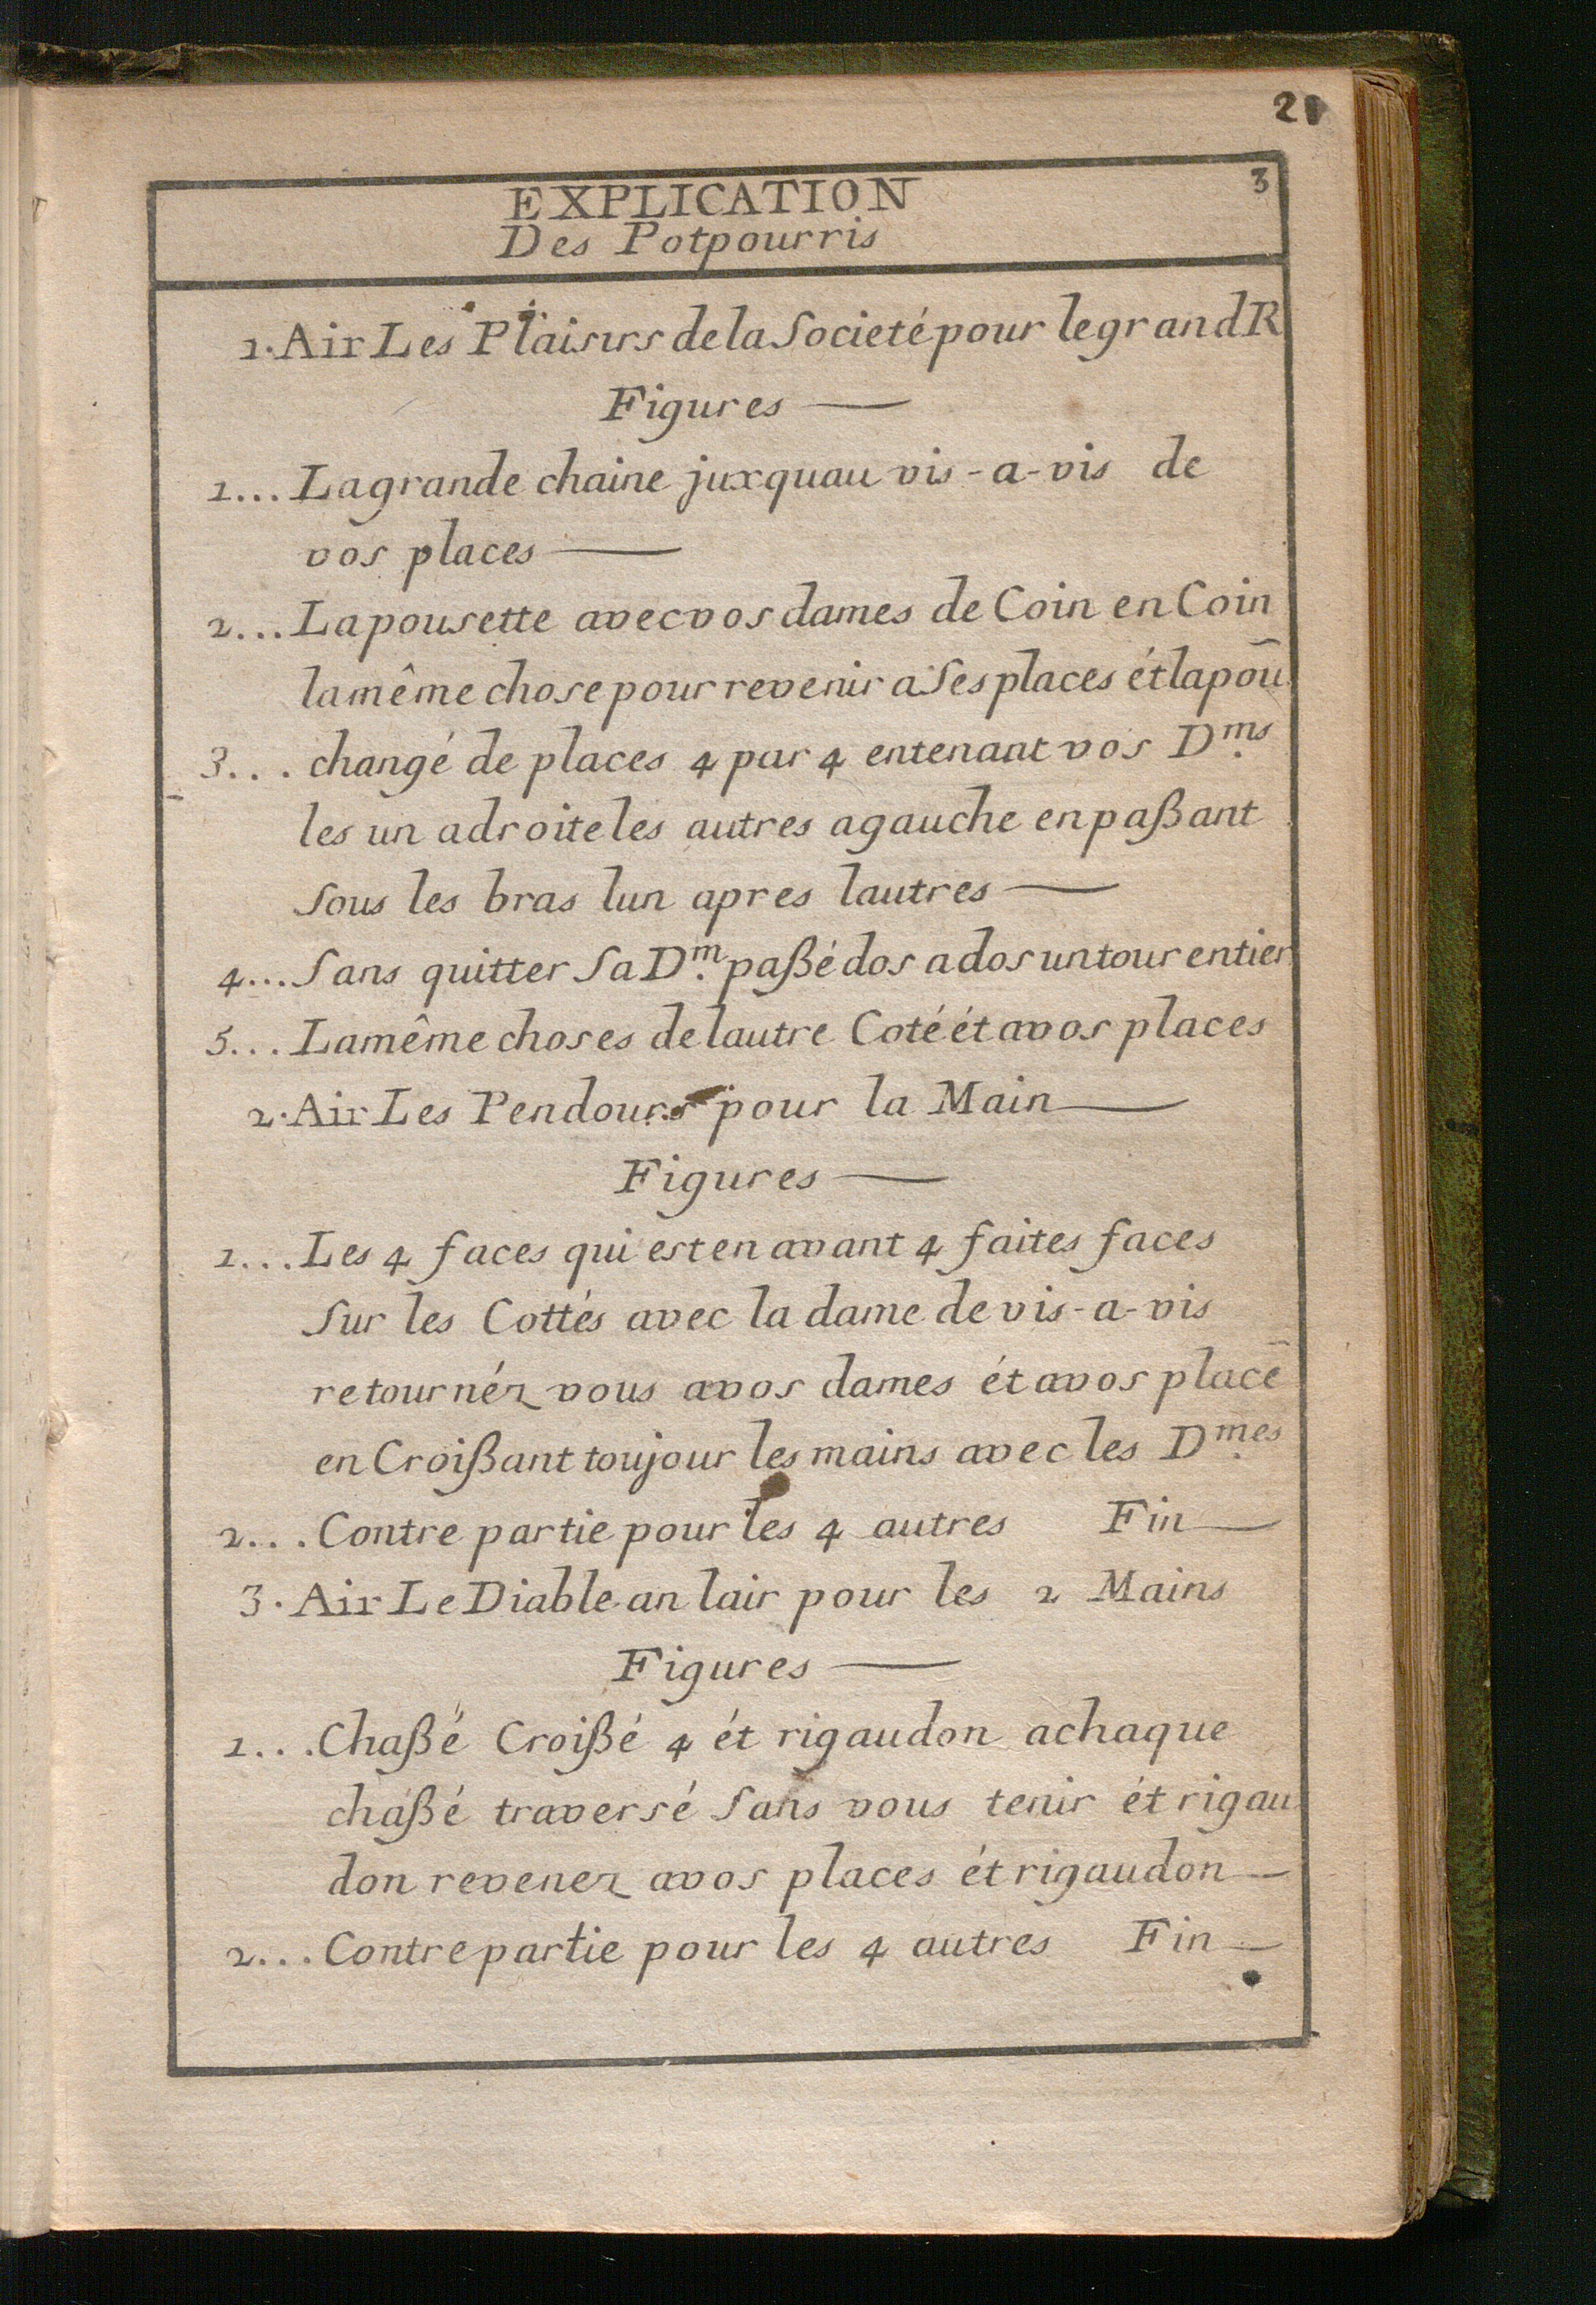 2
3
EXPLICATION
Des Potpourris
1. Air Les Plaisirs de la Societé pour le grand R
Figures —
1... La grande chaine juxquau vis-a-vis de
vos places —
2... La pousette avec vos dames de Coin en Coin
la même chose pour revenir a Ses places ét la poū
3... changé de places 4 par 4 en tenant vos D.ms
les un a droite les autres a gauche en paßant
Sous les bras lun apres lautres —
4... Sans quitter Sa D.m paßé dos a dos un tour entier
5... La même choses de lautre Coté ét a vos places
2. Air Les Pendours pour la Main —
Figures —
1... Les 4 faces qui est en avant 4 faites faces
Sur les Cottés avec la dame de vis-a-vis
retournéz vous a vos dames ét a vos placē
en Croißant toujour les mains avec les D.mes
2... Contre partie pour les 4 autres Fin —
3. Air Le Diable an lair pour les 2 Mains
Figures —
1... Chaßé Croißé 4 ét rigaudon a chaque
chaßé traversé Sans vous tenir ét rigau
don revenez a vos places ét rigaudon —
2... Contre partie pour les 4 autres Fin —